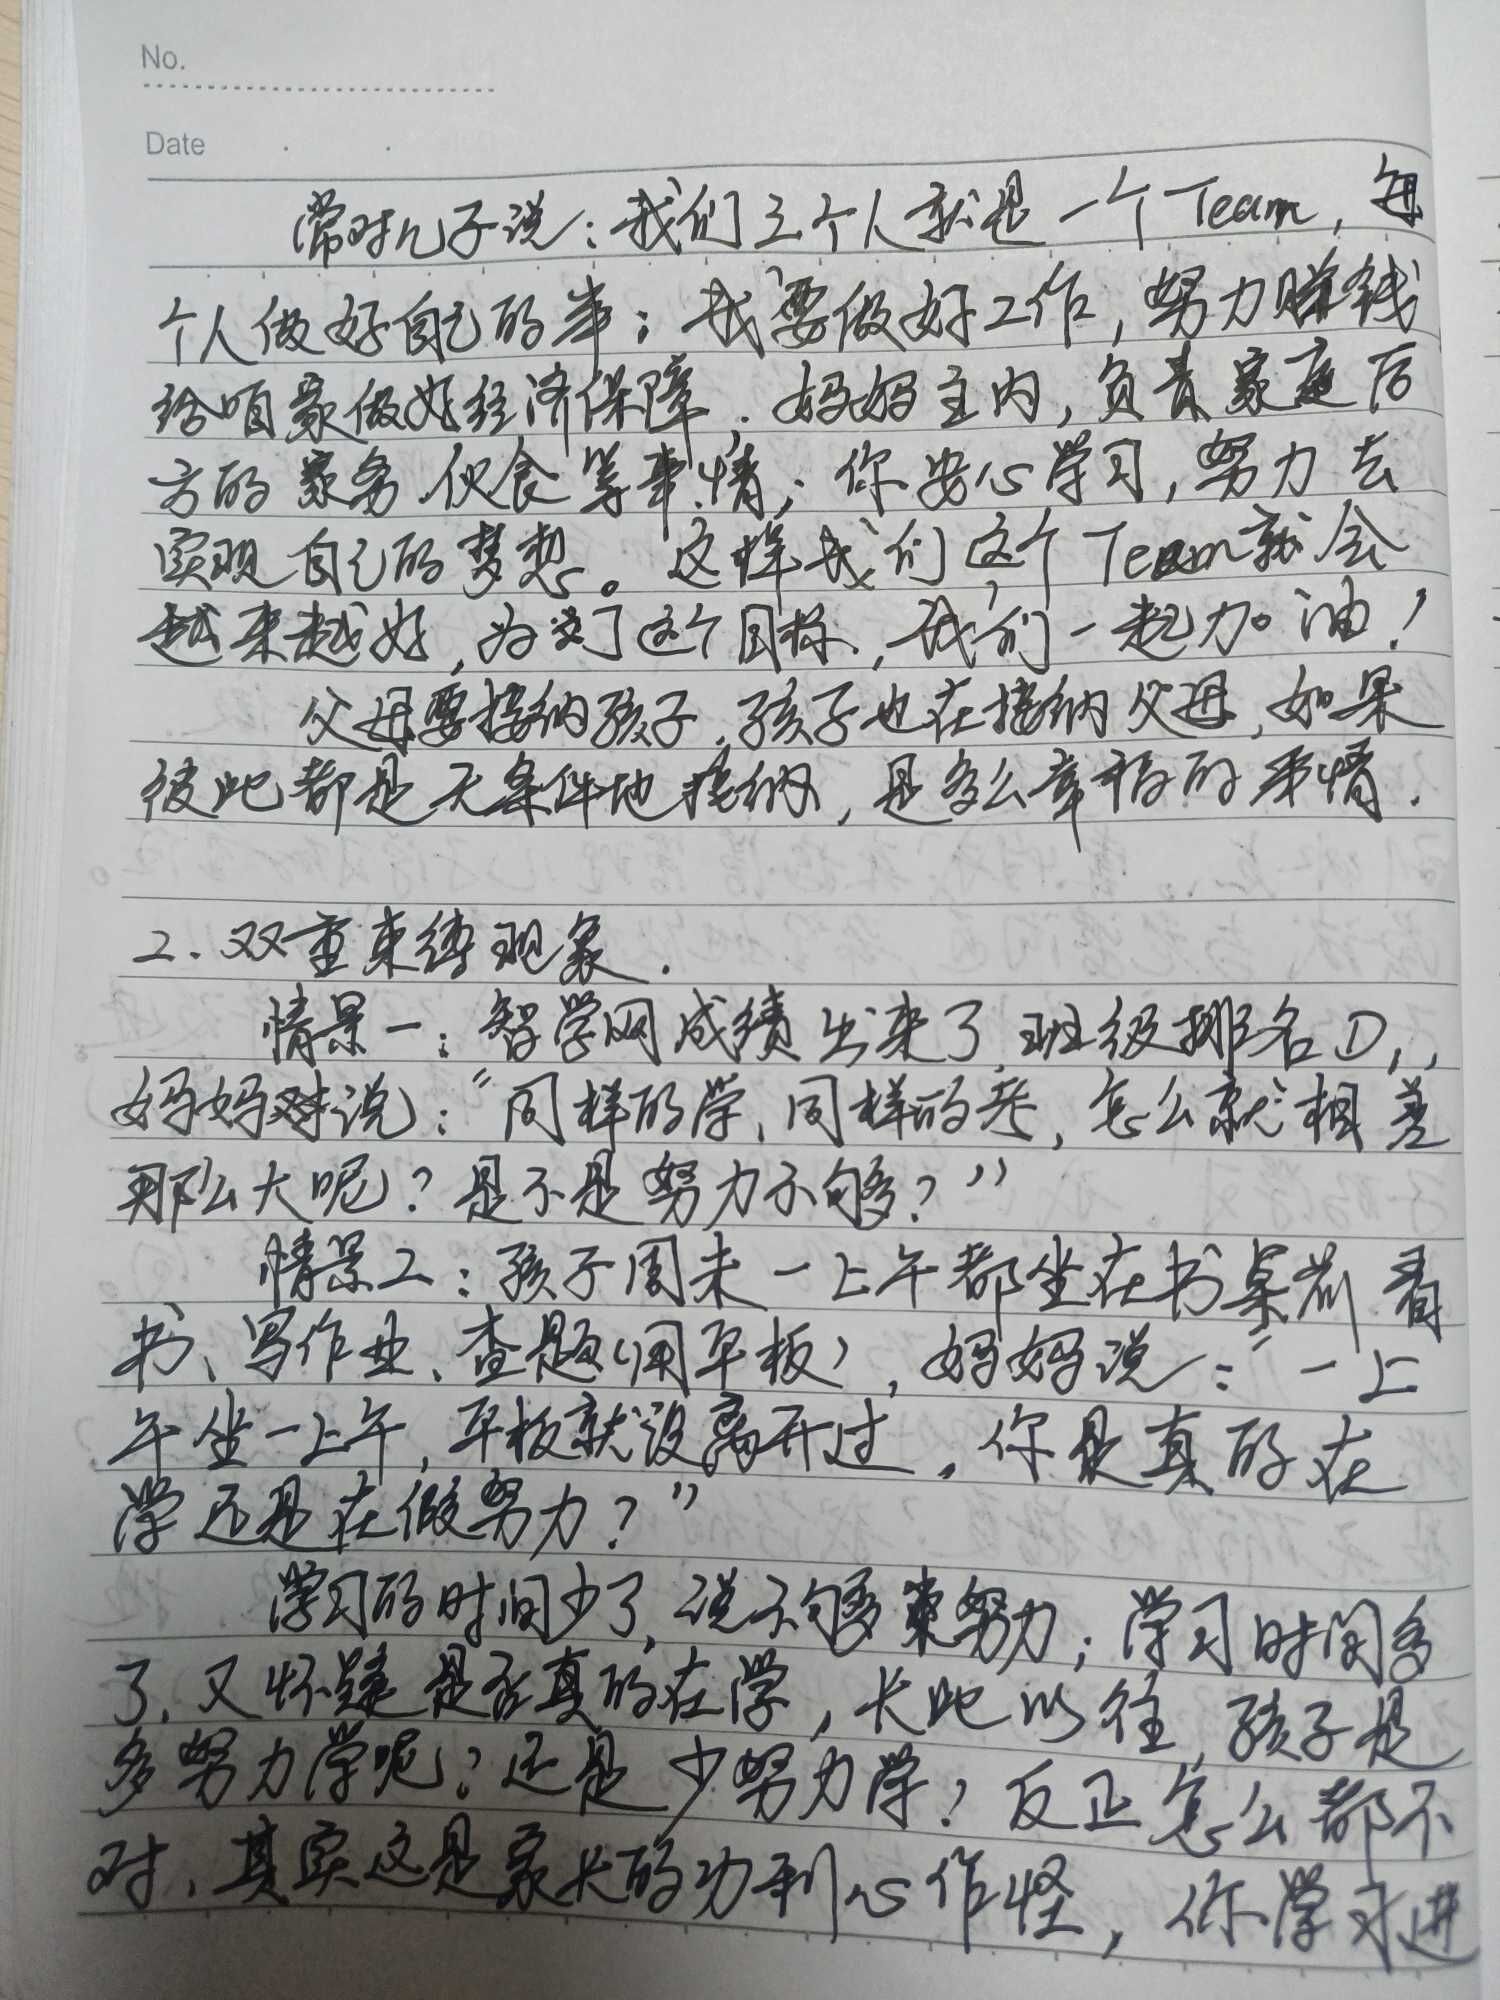 No.
Date
常对儿子说：我们三个人就是一个Team，每
个人做好自己的事；我要做好工作，努力赚钱
给咱家做好经济保障．妈妈主内，负责家庭后
方的家务、伙食等事情；你安心学习，努力去
实现自己的梦想。这样我们这个Team就会
越来越好，为了这个目标，我们一起加油！
父母要接纳孩子．孩子也在接纳父母，如果
彼此都是无条件地接纳，是多么幸福的事情．
2．双重束缚现象．
情景一：智学网成绩出来了，班级排名D，
妈妈对说：“同样的学、同样的考，怎么就相差
那么大呢？是不是努力不够？”
情景二：孩子周末一上午都坐在书桌前看
书、写作业、查题（用平板），妈妈说：“一上
午坐一上午，平板就没离开过．你是真的在
学还是在假努力？”
学习的时间少了，说不够努力；学习时间多
了，又怀疑是否真的在学，长此以往，孩子是
多努力学呢？还是少努力学？反正怎么都不
对，其实这是家长的功利心作怪，你学习进